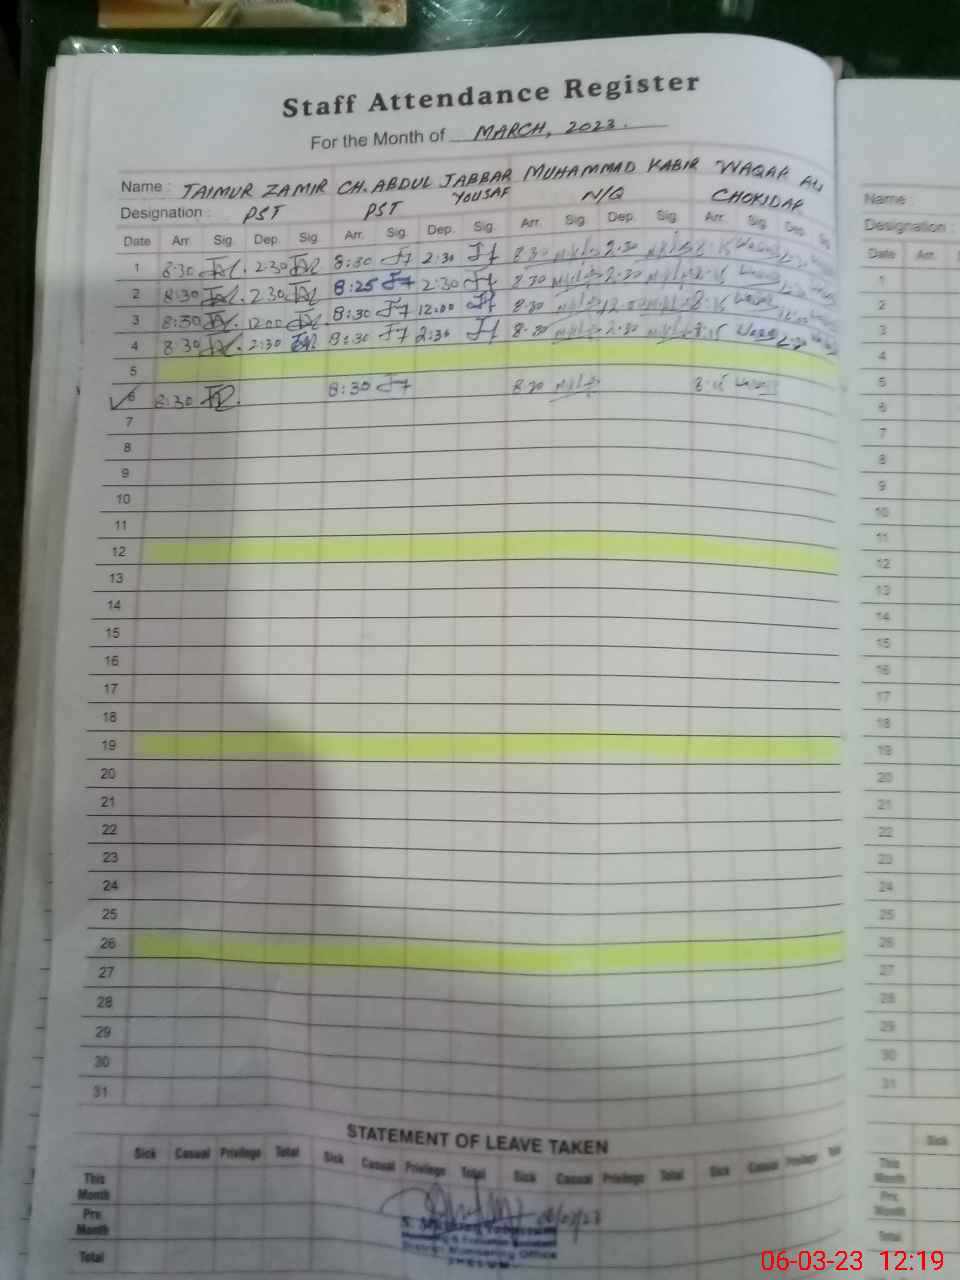 Staff Attendance Register
For the Month of MARCH, 2023.
Name : TAIMUR ZAMIR CH. ABDUL JABBAR YOUSAF MUHAMMAD KABIR WAQAR ALI
Designation : PST PST N/Q CHOKIDAR
Date Arr. Sig. Dep. Sig. Arr. Sig. Dep. Sig. Arr. Sig. Dep. Sig. Arr. Sig. Dep. Sig.
1 8:30 2:30 8:30 2:30 8:30 2:30 8:15
2 8:30 2:30 8:25 2:30 8:30 2:30 8:15
3 8:30 12:00 8:30 12:00 8:30 12:00 8:15
4 8:30 2:30 8:30 2:30 8:30 2:30 8:15
5
6 8:30 8:30 8:30 8:15
7
8
9
10
11
12
13
14
15
16
17
18
19
20
21
22
23
24
25
26
27
28
29
30
31
STATEMENT OF LEAVE TAKEN
Sick Casual Privilege Total Sick Casual Privilege Total Sick Casual Privilege Total Sick Casual Privilege
This Month
Pre Month
Total
06/03/23
District Monitoring Office
JHELUM
Name :
Designation :
Date Arr.
1
2
3
4
5
6
7
8
9
10
11
12
13
14
15
16
17
18
19
20
21
22
23
24
25
26
27
28
29
30
31
Sick
This Month
Pre Month
Total
06-03-23 12:19